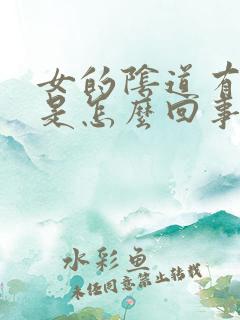 女的陰道有
是怎麼回事
水彩魚
未經同意禁止轉載